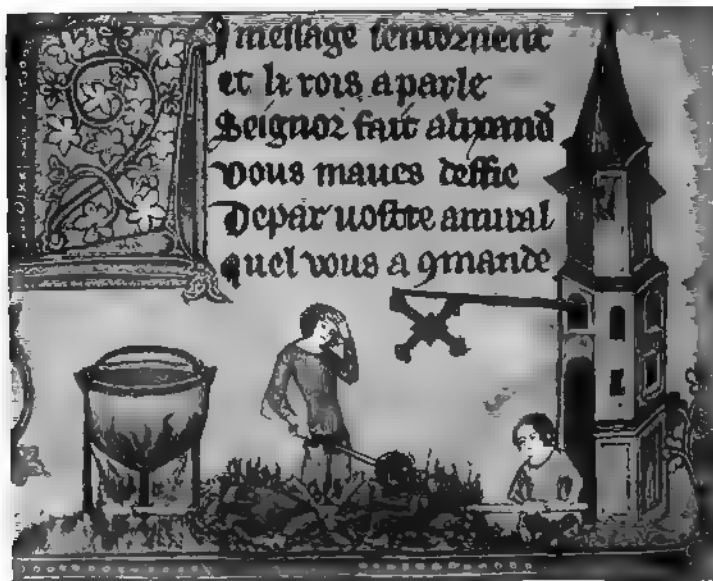 i message sentornent
et li rois a parle
Seignor fait alixand
vous maues deffie
Depar uostre amiral
quel vous a 9mande